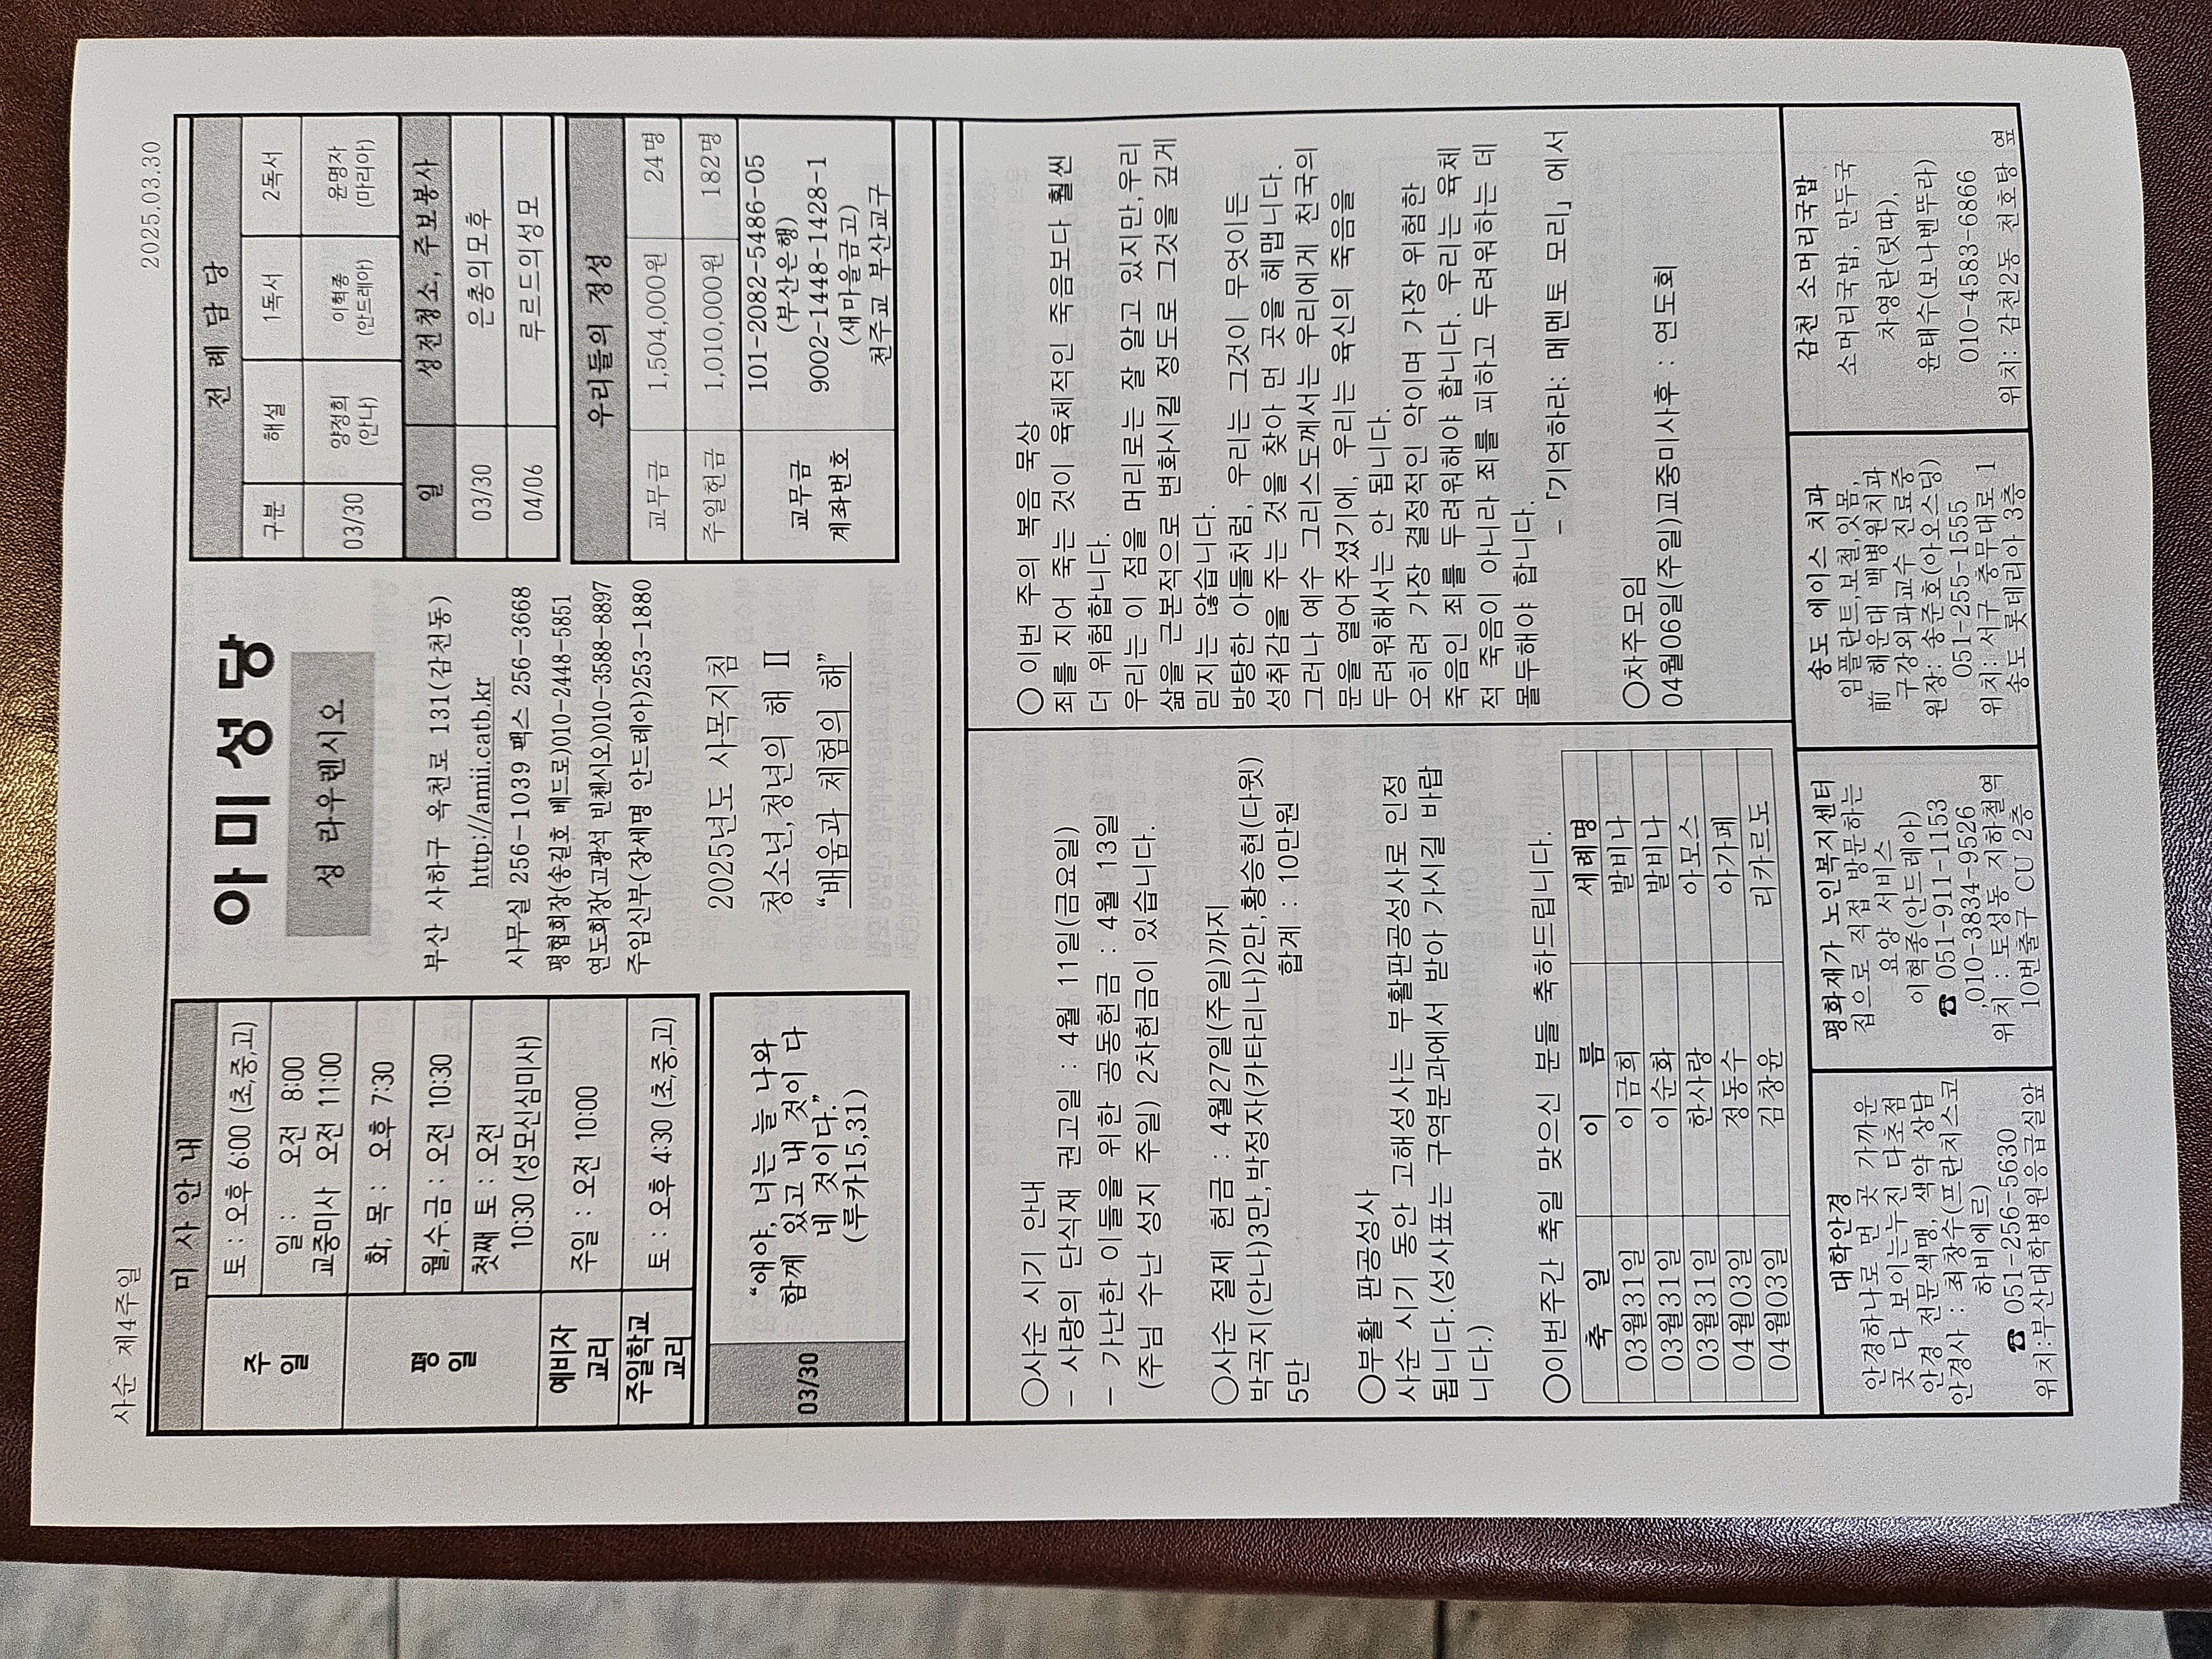 사순 제4주일
2025.03.30
미 사 안 내
주 일
토 : 오후 6:00 (초,중,고)
일 : 오전 8:00
교중미사 오전 11:00
평 일
화, 목 : 오후 7:30
월,수,금 : 오전 10:30
첫째 토 : 오전
10:30 (성모신심미사)
예비자
교리
주일 : 오전 10:00
주일학교
교리
토 : 오후 4:30 (초,중,고)
03/30
“얘야, 너는 늘 나와
함께 있고 내 것이 다
네 것이다.”
(루카15,31)
아 미 성 당
성 라우렌시오
부산 사하구 옥천로 131(감천동)
http://amii.catb.kr
사무실 256-1039 팩스 256-3668
평협회장(송길호 베드로)010-2448-5851
연도회장(고광석 빈첸시오)010-3588-8897
주임신부(장세명 안드레아)253-1880
2025년도 사목지침
청소년,청년의 해 Ⅱ
“배움과 체험의 해”
전 례 담 당
구분 해설 1독서 2독서
03/30 양정희 이혁종 윤명자
(안나) (안드레아) (마리아)
일 성전청소, 주보봉사
03/30 은총의모후
04/06 루르드의성모
우리들의 정성
교무금 1,504,000원 24명
주일헌금 1,010,000원 182명
교무금
계좌번호
101-2082-5486-05
(부산은행)
9002-1448-1428-1
(새마을금고)
천주교 부산교구
○사순 시기 안내
- 사랑의 단식재 권고일 : 4월 11일(금요일)
- 가난한 이들을 위한 공동헌금 : 4월 13일
(주님 수난 성지 주일) 2차헌금이 있습니다.
○사순 절제 헌금 : 4월27일(주일)까지
박곡지(안나)3만,박정자(카타리나)2만,황승현(다윗)
5만 합계 : 10만원
○부활 판공성사
사순 시기 동안 고해성사는 부활판공성사로 인정
됩니다.(성사표는 구역분과에서 받아 가시길 바랍
니다.)
○이번주간 축일 맞으신 분들 축하드립니다.
축 일 이 름 세례명
03월31일 이금희 발비나
03월31일 이순화 발비나
03월31일 한사랑 아모스
04월03일 정동수 아가페
04월03일 김창윤 리카르도
○ 이번 주의 복음 묵상
죄를 지어 죽는 것이 육체적인 죽음보다 훨씬
더 위험합니다.
우리는 이 점을 머리로는 잘 알고 있지만,우리
삶을 근본적으로 변화시킬 정도로 그것을 깊게
믿지는 않습니다.
방탕한 아들처럼, 우리는 그것이 무엇이든
성취감을 주는 것을 찾아 먼 곳을 헤맵니다.
그러나 예수 그리스도께서는 우리에게 천국의
문을 열어주셨기에, 우리는 육신의 죽음을
두려워해서는 안 됩니다.
오히려 가장 결정적인 악이며 가장 위험한
죽음인 죄를 두려워해야 합니다. 우리는 육체
적 죽음이 아니라 죄를 피하고 두려워하는 데
몰두해야 합니다.
- 「기억하라: 메멘토 모리」 에서
○차주모임
04월06일(주일)교중미사후 : 연도회
대학안경
안경하나로 먼 곳 가까운
곳 다 보이는누진 다초점
안경 전문색맹, 색약 상담
안경사 : 최창수(프란치스코
하비에르)
☎ 051-256-5630
위치:부산대학병원응급실앞
평화재가 노인복지센터
집으로 직접 방문하는
요양 서비스
이혁종(안드레아)
☎ 051-911-1153
,010-3834-9526
위치 : 토성동 지하철역
10번출구 CU 2층
송도 에이스 치과
임플란트,보철,잇몸,
前 해운대 백병원치과
구강외과교수 진료중
원장: 송준호(아오스딩)
051-255-1555
위치: 서구 충무대로 1
송도 롯데리아 3층
감천 소머리국밥
소머리국밥, 만두국
차영란(릿따),
윤태수(보나벤뚜라)
010-4583-6866
위치: 감천2동 천호탕 옆